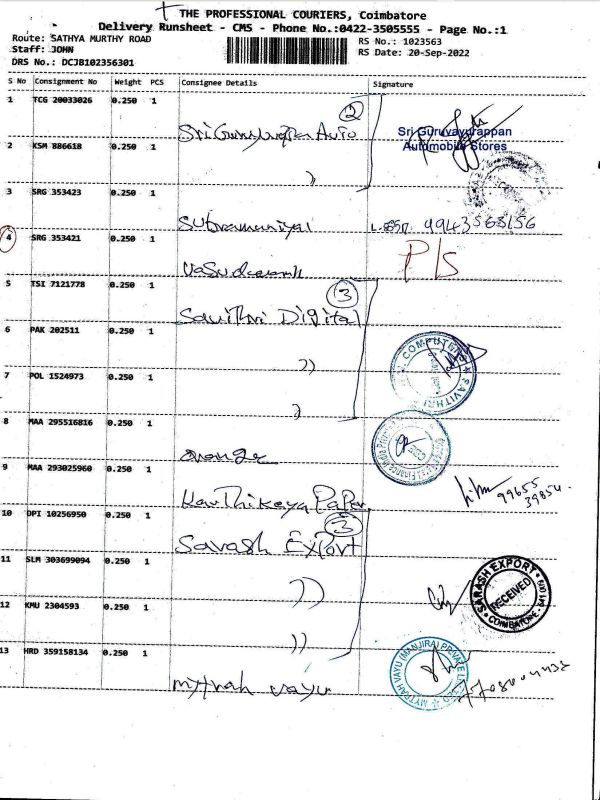 THE PROFESSIONAL COURIERS, Coimbatore
Delivery Runsheet - CMS - Phone No.:0422-3505555 - Page No.:1
Route: SATHYA MURTHY ROAD
RS No.: 1023563
Staff: JOHN
RS Date: 20-Sep-2022
DRS No.: DCJB102356301
S No Consignment No Weight PCS Consignee Details Signature
1 TCG 20033026 0.250 1
2
Sri Guruvayurappan
Automobile Stores
2 KSM 886618 0.250 1
3 SRG 353423 0.250 1
9943568156
4 SRG 353421 0.250 1
P/S
5 TSI 7121778 0.250 1
3
Savithri Digital
6 PAK 202511 0.250 1
COMPUTERS SAVITHRI
7 POL 1524973 0.250 1
8 MAA 295516816 0.250 1
orange
9 MAA 293025960 0.250 1
Karthikeya Paper
99655
39854
10 DPI 10256950 0.250 1
3
Sarash Export
11 SLM 303699094 0.250 1
SARASH EXPORT
RECEIVED
COIMBATORE - 641 009
12 KMU 2304593 0.250 1
13 HRD 359158134 0.250 1
MYTRAH VAYU (MANJIRA) PRIVATE LIMITED
mytrah vayu